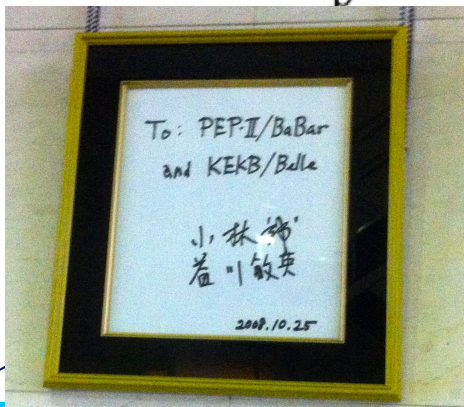 To: PEP-II/BaBar
and KEKB/Belle
小林 誠
益川敏英
2008.10.25